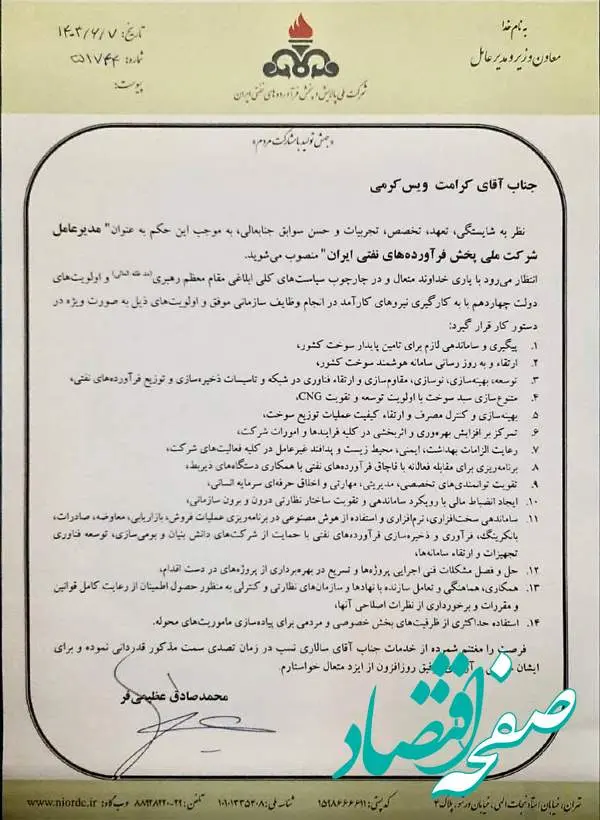 به نام خدا
معاون وزیر و مدیر عامل
شرکت ملی پالایش و پخش فرآورده‌های نفتی ایران
تاریخ: ۱۴۰۳/۶/۷
شماره: ۵۱۷۴۴
پیوست:
«جهش تولید با مشارکت مردم»
جناب آقای کرامت ویس‌کرمی
نظر به شایستگی، تعهد، تخصص، تجربیات و حسن سوابق جنابعالی، به موجب این حکم به عنوان" مدیرعامل
شرکت ملی پخش فرآورده‌های نفتی ایران" منصوب می‌شوید.
انتظار می‌رود با یاری خداوند متعال و در چارچوب سیاست‌های کلی ابلاغی مقام معظم رهبری(مد ظله العالی) و اولویت‌های
دولت چهاردهم با به کارگیری نیروهای کارآمد در انجام وظایف سازمانی موفق و اولویت‌های ذیل به صورت ویژه در
دستور کار قرار گیرد:
۱. پیگیری و ساماندهی لازم برای تامین پایدار سوخت کشور،
۲. ارتقاء و به روز رسانی سامانه هوشمند سوخت کشور،
۳. توسعه، بهینه‌سازی، نوسازی، مقاوم‌سازی و ارتقاء فناوری در شبکه و تاسیسات ذخیره‌سازی و توزیع فرآورده‌های نفتی،
۴. متنوع‌سازی سبد سوخت با اولویت توسعه و تقویت CNG،
۵. بهینه‌سازی و کنترل مصرف و ارتقاء کیفیت عملیات توزیع سوخت،
۶. تمرکز بر افزایش بهره‌وری و اثربخشی در کلیه فرایندها و امورات شرکت،
۷. رعایت الزامات بهداشت، ایمنی، محیط زیست و پدافند غیرعامل در کلیه فعالیت‌های شرکت،
۸. برنامه‌ریزی برای مقابله فعالانه با قاچاق فرآورده‌های نفتی با همکاری دستگاه‌های ذیربط،
۹. تقویت توانمندی‌های تخصصی، مدیریتی، مهارتی و اخلاق حرفه‌ای سرمایه انسانی،
۱۰. ایجاد انضباط مالی با رویکرد ساماندهی و تقویت ساختار نظارتی درون و برون سازمانی،
۱۱. ساماندهی سخت‌افزاری، نرم‌افزاری و استفاده از هوش مصنوعی در برنامه‌ریزی عملیات فروش، بازاریابی، معاوضه، صادرات،
بانکرینگ، فرآوری و ذخیره‌سازی فرآورده‌های نفتی با حمایت از شرکت‌های دانش بنیان و بومی‌سازی، توسعه فناوری
تجهیزات و ارتقاء سامانه‌ها،
۱۲. حل و فصل مشکلات فنی اجرایی پروژه‌ها و تسریع در بهره‌برداری از پروژه‌های در دست اقدام،
۱۳. همکاری، هماهنگی و تعامل سازنده با نهادها و سازمان‌های نظارتی و کنترلی به منظور حصول اطمینان از رعایت کامل قوانین
و مقررات و برخورداری از نظرات اصلاحی آنها،
۱۴. استفاده حداکثری از ظرفیت‌های بخش خصوصی و مردمی برای پیاده‌سازی ماموریت‌های محوله.
فرصت را مغتنم شمرده از خدمات جناب آقای سالاری نسب در زمان تصدی سمت مذکور قدردانی نموده و برای
ایشان توفیق روزافزون از ایزد متعال خواستارم.
محمدصادق عظیمی‌فر
صفحه اقتصاد
تهران، خیابان استاد نجات الهی، خیابان ورشو، پلاک ۴ کد پستی: ۱۵۹۸۶۶۶۶۱۱ شناسه ملی: ۱۰۱۰۱۳۳۵۴۰۸ تلفن: ۲۲-۸۸۹۲۸۲۲۰ وب‌گاه: www.niordc.ir